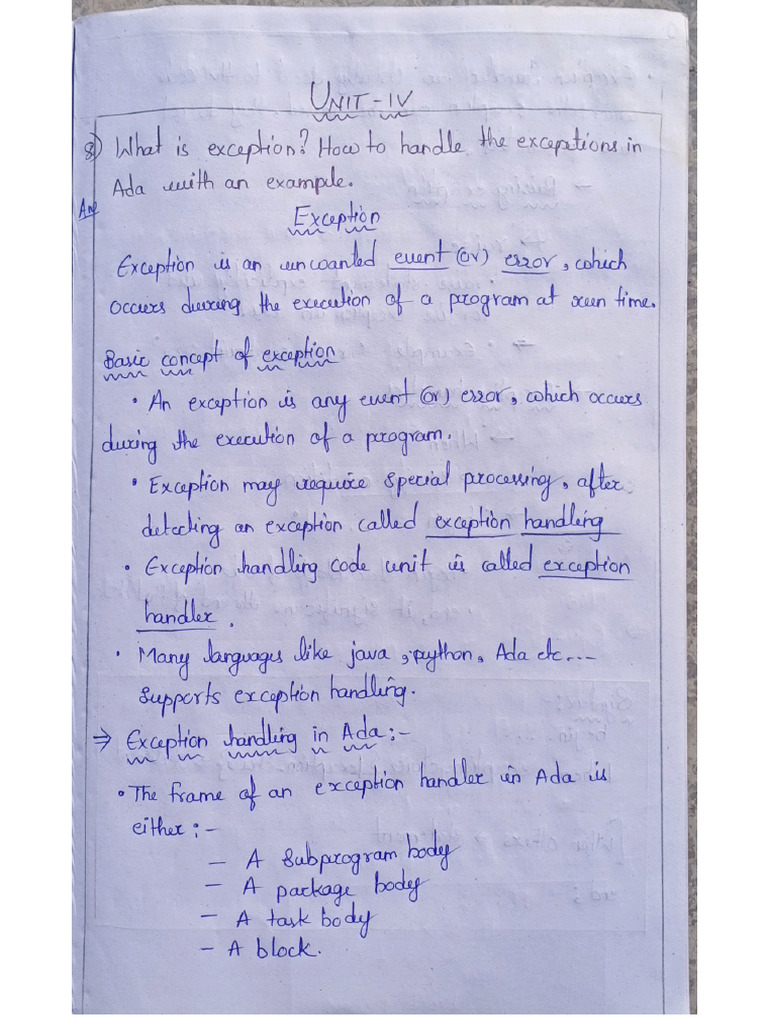 UNIT-IV
8) What is exception? How to handle the exceptions in
Ada with an example.
Ans
Exception
Exception is an uncoanted event (or) error, which
occurs during the execution of a program at run time.
Basic concept of exception
• An exception is any event (or) error, which occurs
during the execution of a program.
• Exception may require special processing, after
detecting an exception called exception handling
• Exception handling code unit is called exception
handler.
• Many languages like java, python, Ada etc...
supports exception handling.
⇒ Exception handling in Ada:-
• The frame of an exception handler in Ada is
either:-
- A Subprogram body
- A package body
- A task body
- A block.